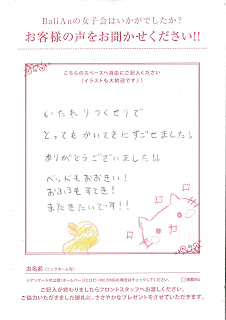 BaliAnの女子会はいかがでしたか?
お客様の声をお聞かせください!!
こちらのスペースへ自由にご記入ください
(イラストも大歓迎です♪)
いたれりつくせりで
とってもかいてきにすごせました!
ありがとうございました!!
ベッドもおおきい!
おふろもすてき!
またきたいです!!
お名前(ニックネーム可)
ご記入が終わりましたらフロントスタッフへお渡しください。
ご協力いただきました御礼に、ささやかなプレゼントをさせていただきます。